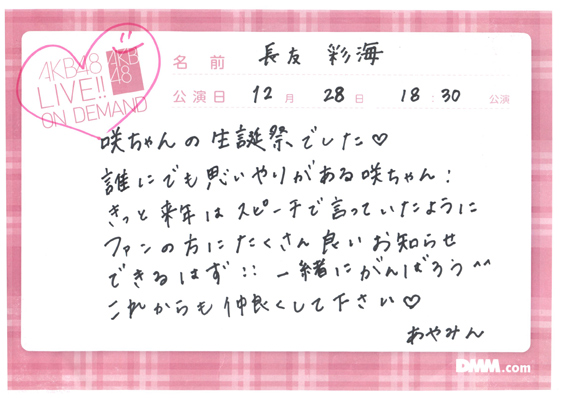 AKB48
LIVE!!
ON DEMAND
AKB
48
名前 長友 彩海
公演日 12月 28日 18:30 公演
咲ちゃんの生誕祭でした♡
誰にでも思いやりがある咲ちゃん!
きっと来年はスピーチで言っていたように
ファンの方にたくさん良いお知らせ
できるはず!! 一緒にがんばろう^^
これからも仲良くして下さい♡
あやみん
DMM.com